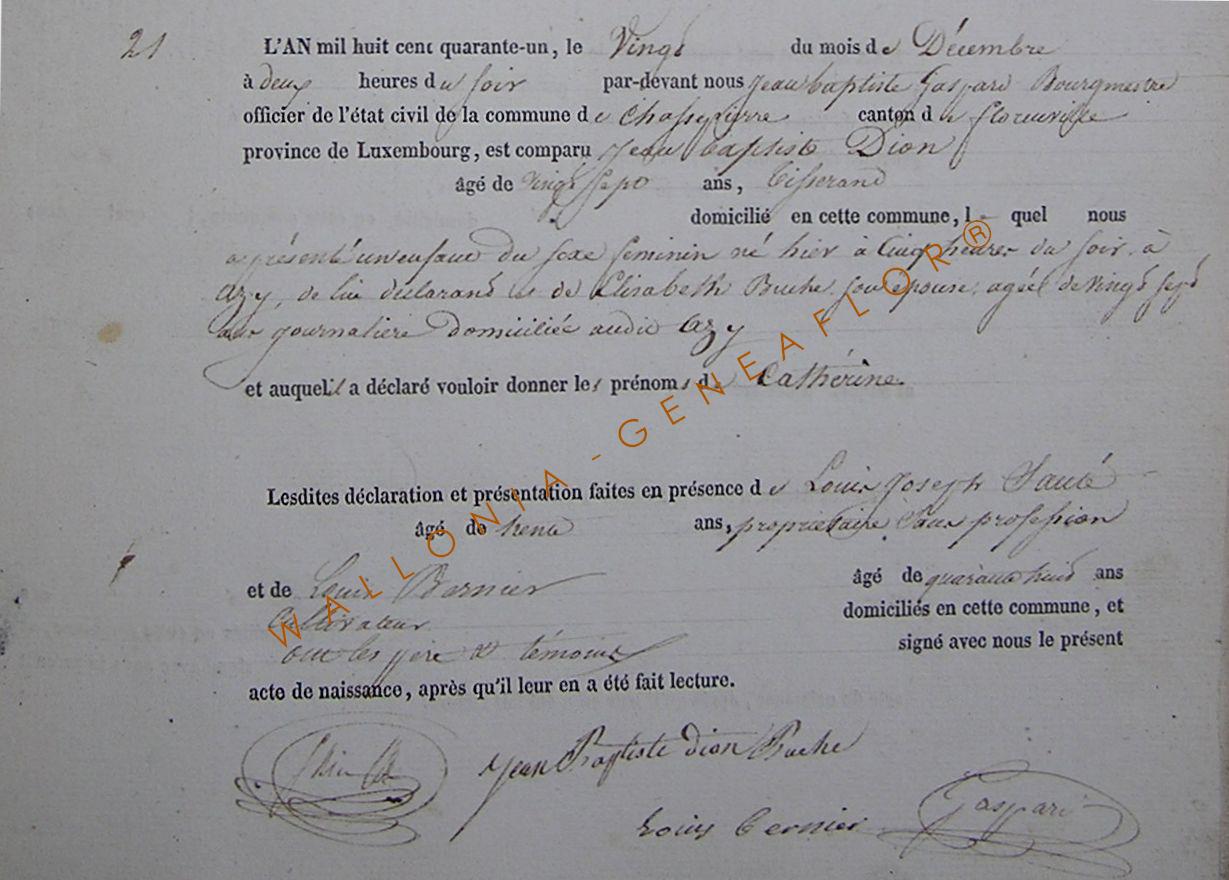 21
L'AN mil huit cent quarante-un, le Vingt du mois de Décembre
à deux heures du soir par-devant nous Jean baptiste Gaspari Bourgmestre
officier de l'état civil de la commune de Chassepierre canton de florenville
province de Luxembourg, est comparu Jean baptiste Dion
âgé de vingt sept ans, Tisserand
domicilié en cette commune, l quel nous
a présenté un enfant du sexe feminin né hier à Cinq heures du soir, à
Azy, de lui déclarant et de Elisabeth Buche son épouse, agéé de vingt sept
ans journaliere domiciliée audit Azy
et auquel il a déclaré vouloir donner les prénoms de Cathérine
Lesdites déclaration et présentation faites en présence de Louis Joseph
âgé de trente ans, propriétaire sans profession
et de Louis Bernier âgé de quarante huit ans
Cultivateur domiciliés en cette commune, et
ont les pere et témoins signé avec nous le présent
acte de naissance, après qu'il leur en a été fait lecture.
Jean Baptiste dion Buche
Louis Bernier Gaspari
WALLONIA-GENEAFLOR®